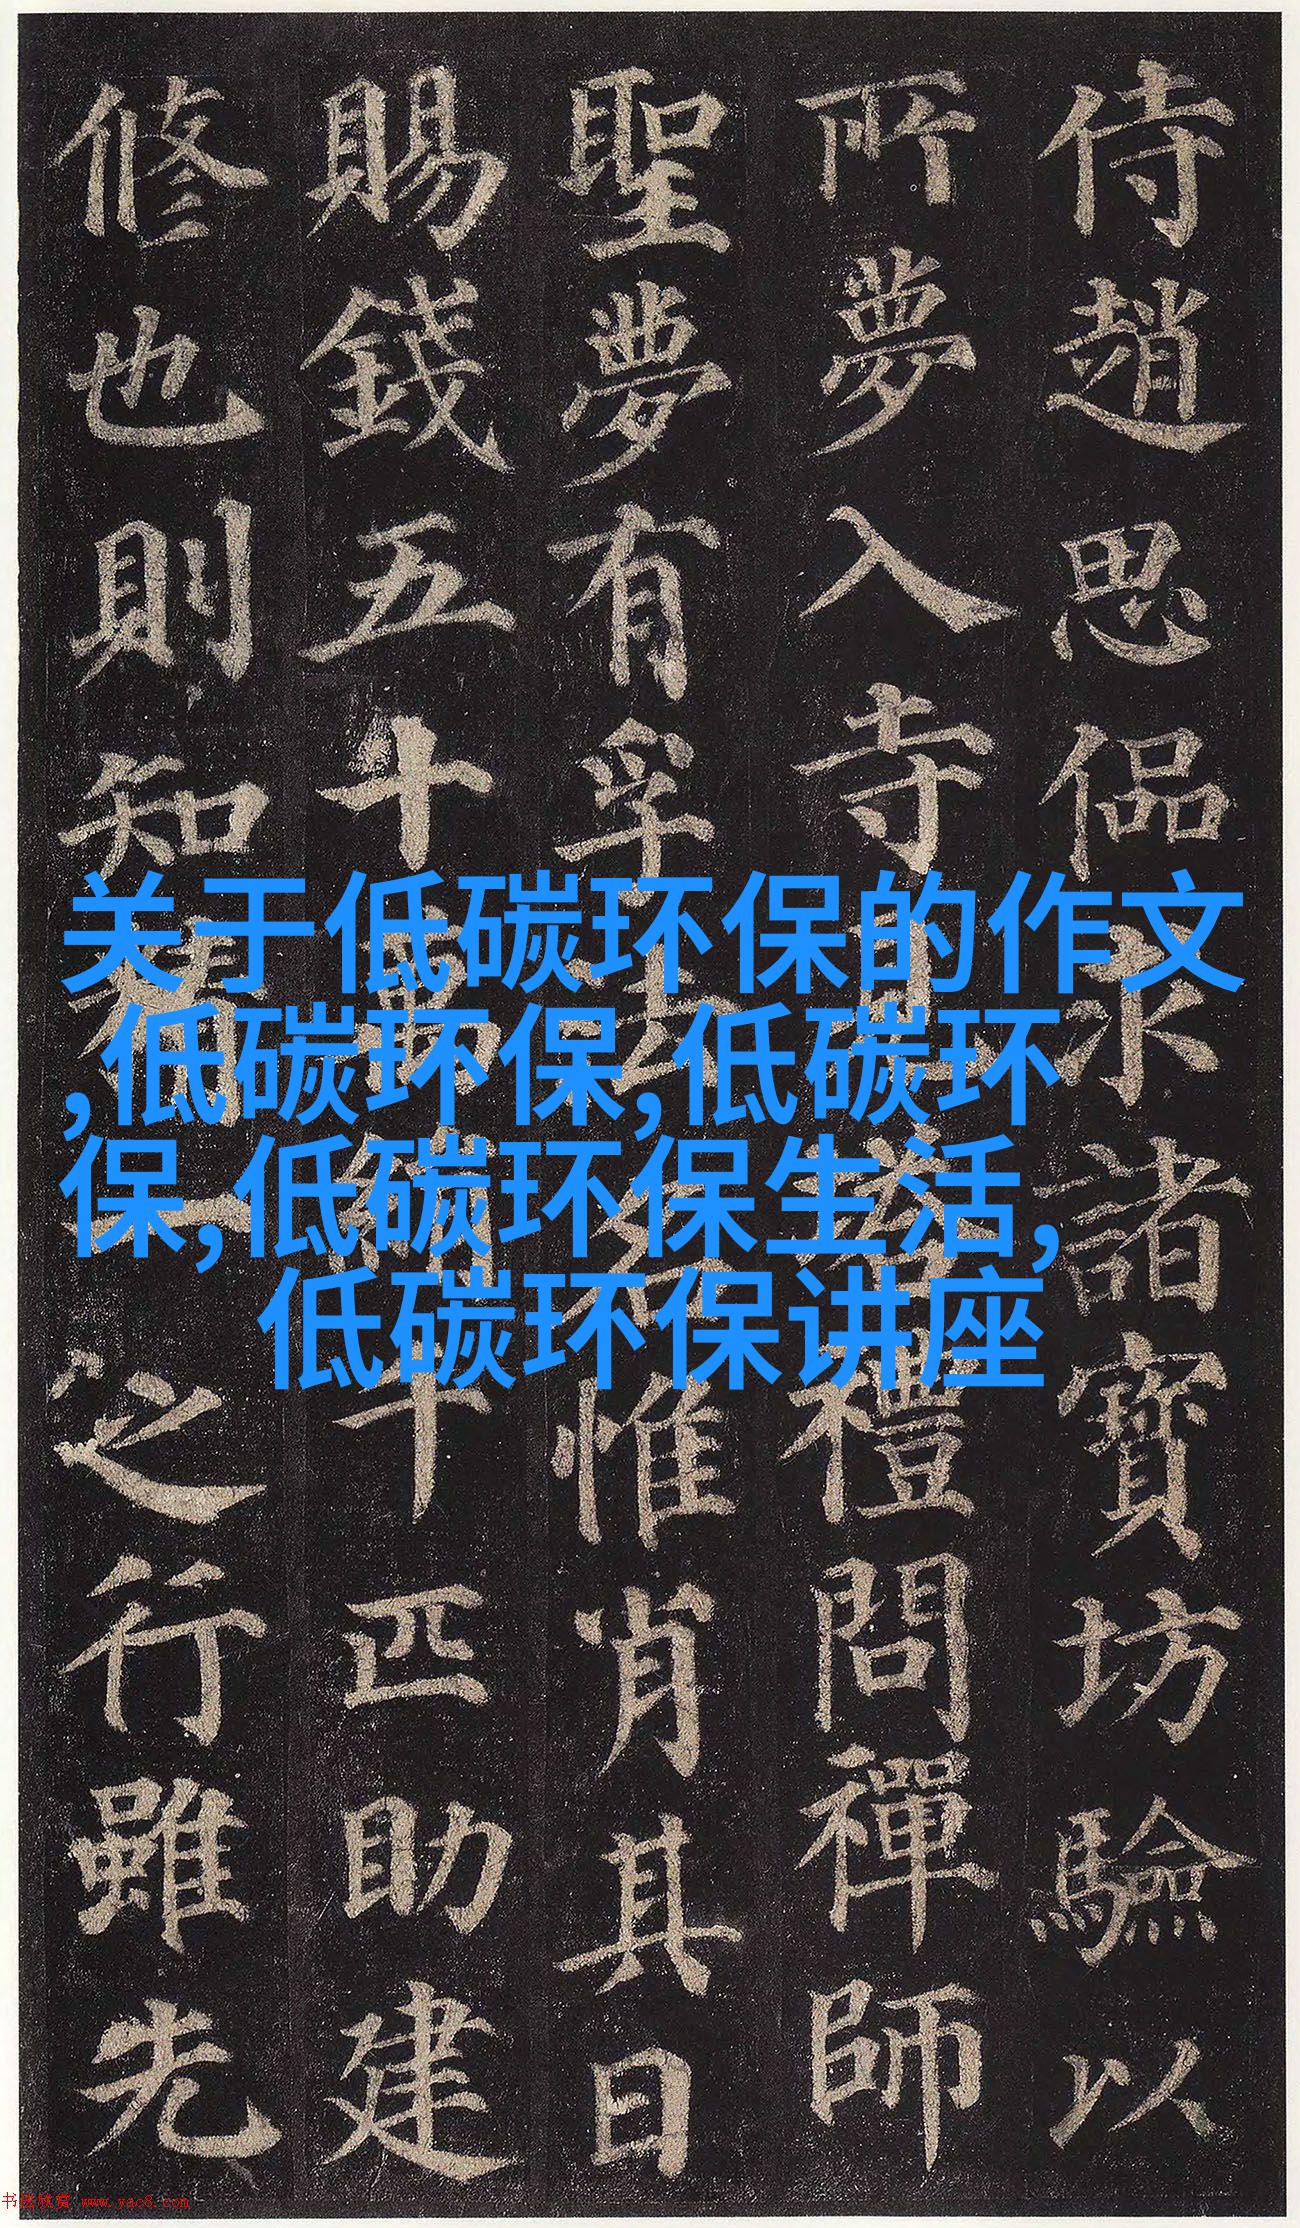 侍趙思偘求諸寶坊驗以
所夢入寺見塔禮問禪師
聖夢有孚法名惟肖其日
賜錢五十萬絹千匹助建
修也則知精一之行雖先
关于低碳环保的作文
,低碳环保,低碳环
保,低碳环保生活,
低碳环保讲座
书法欣赏 www.yac8.com